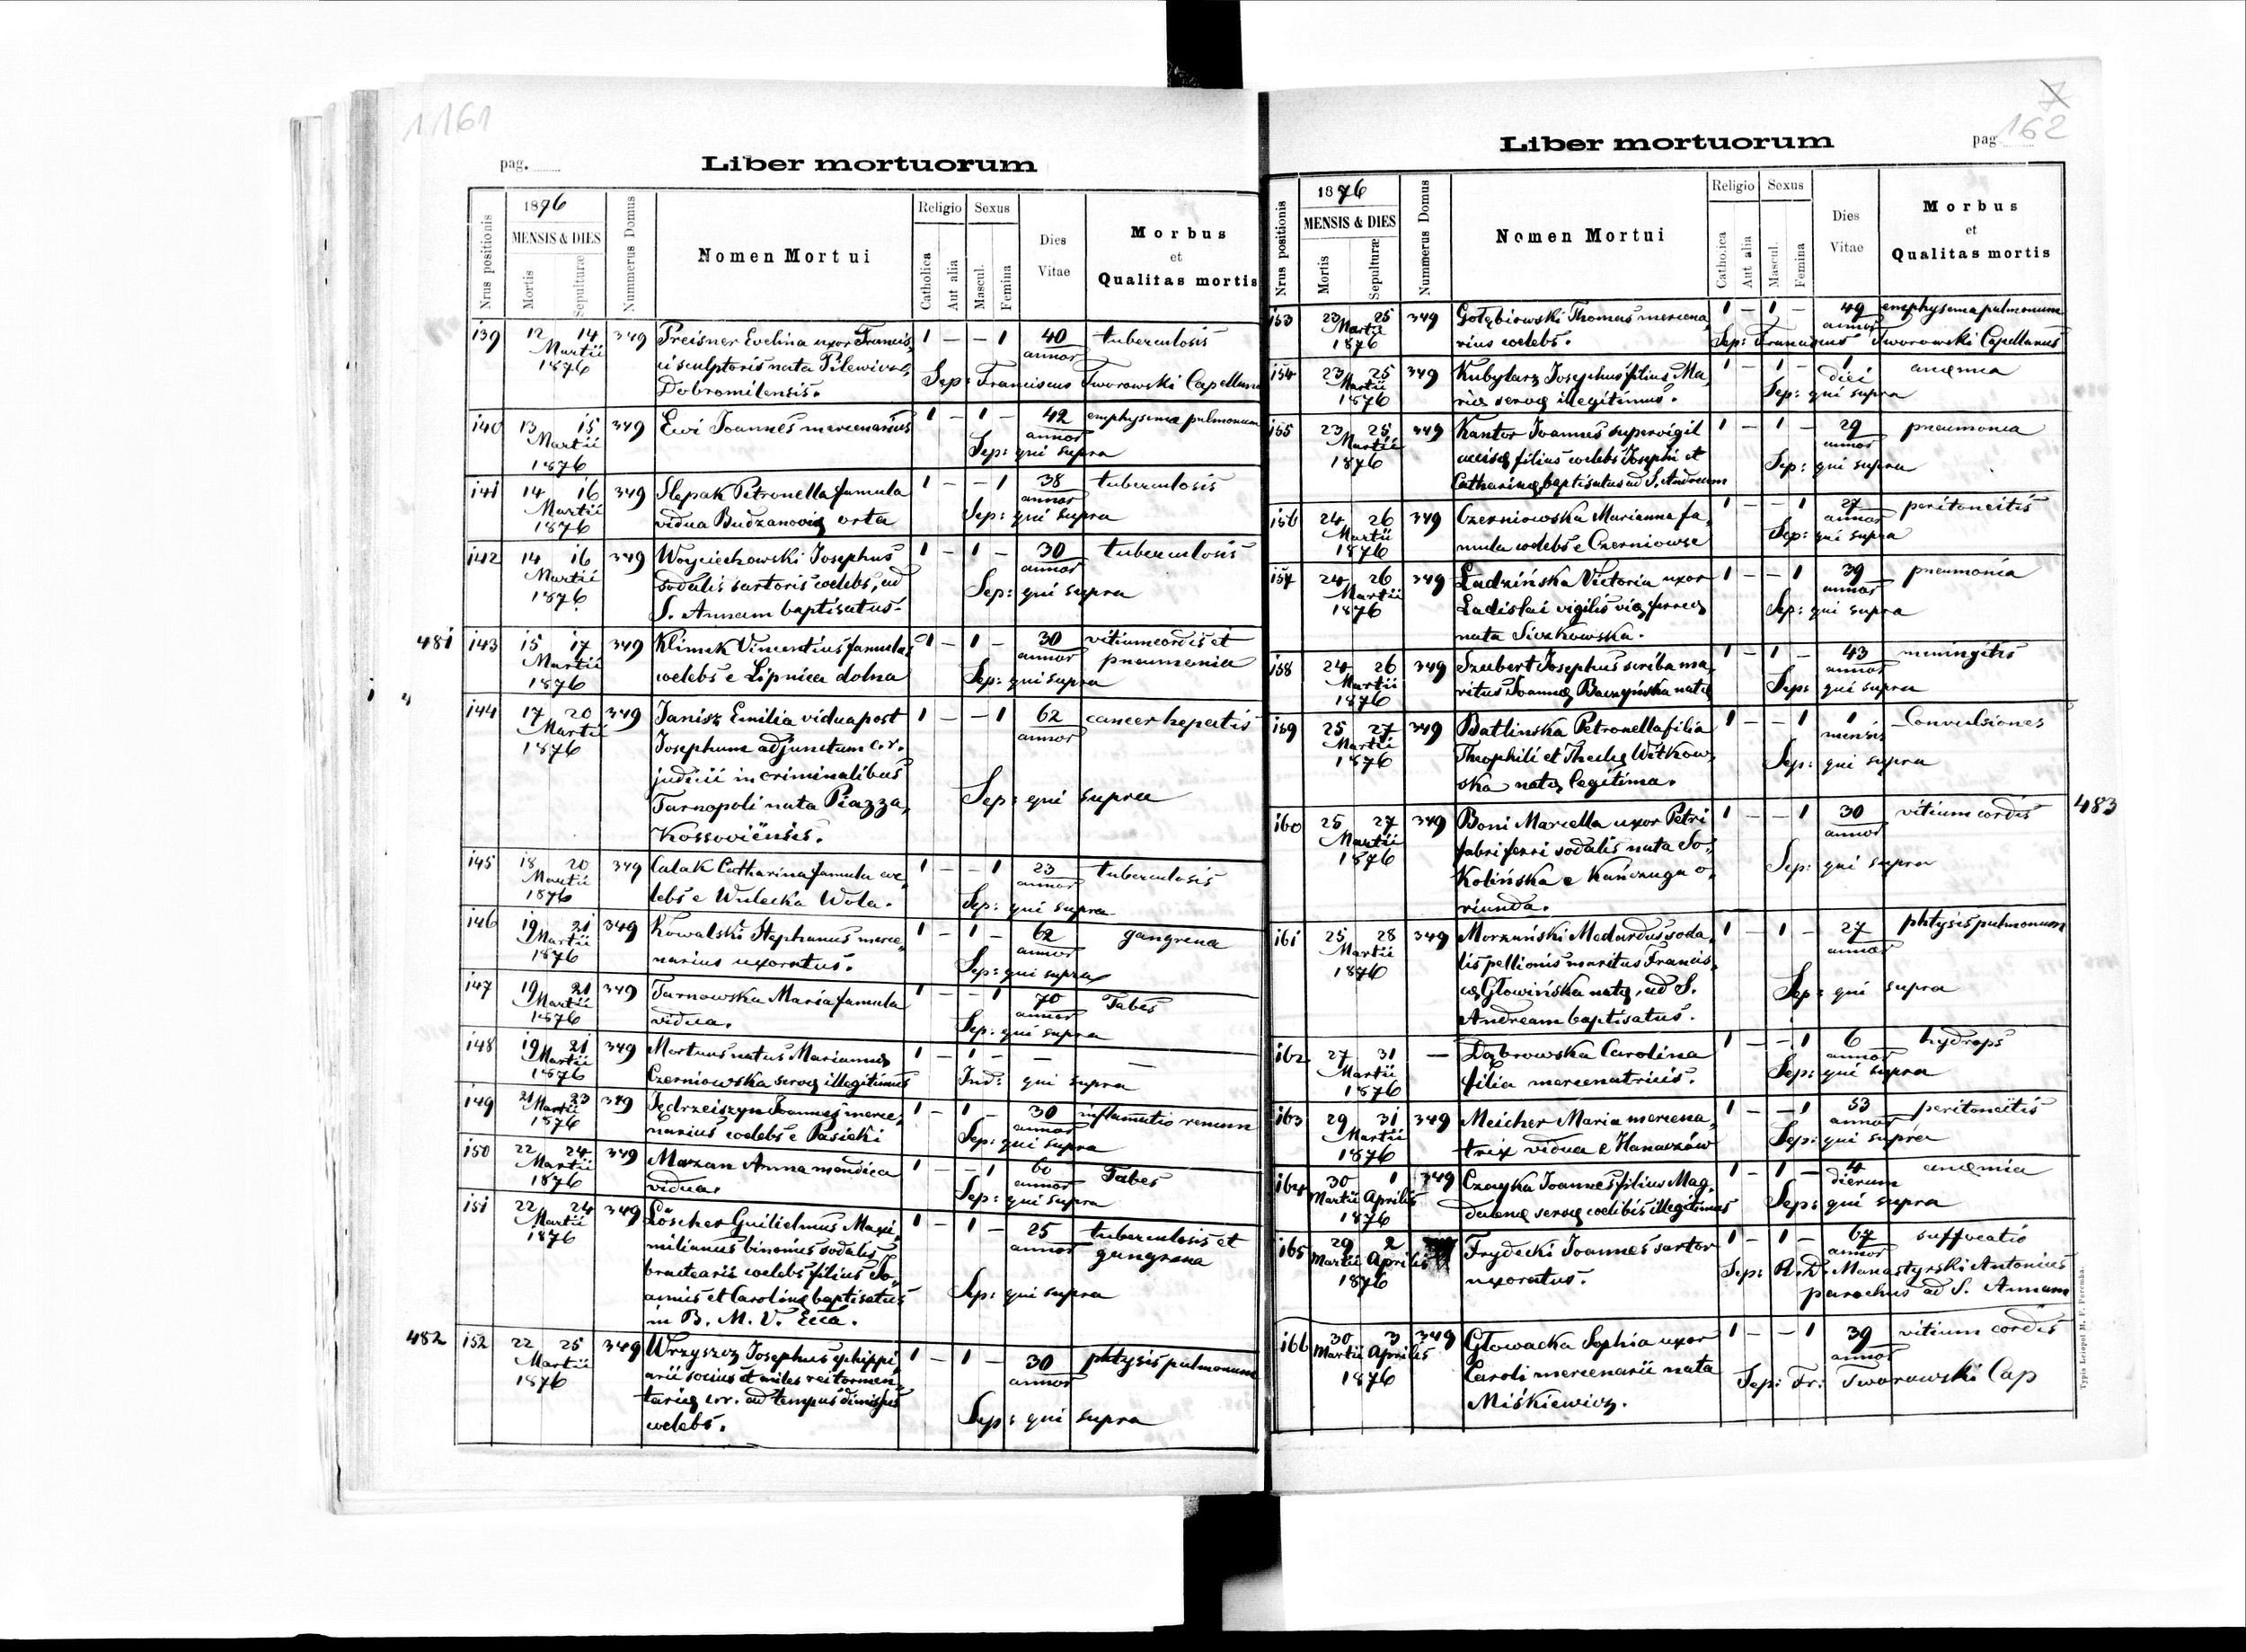 1.161
pag.
Liber mortuorum
Nrus positionis
1876
MENSIS & DIES
Mortis
Sepulturæ
Nummerus Domus
Nomen Mortui
Religio
Catholica
Aut alia
Sexus
Mascul.
Femina
Dies
Vitae
Morbus
et
Qualitas mortis
139 12 14 349 Preisner Evelina uxor Francis, 1 – – 1 40 tuberculosis
Martii ci sculptoris nata annor
1876 Dobromilensis. Sep: Franciscus Tworowski Capellanus
140 13 15 349 Ewi Joannes mercenarius 1 – 1 – 42 emphysema pulmonum
Martii annor
1876 Sep: qui supra
141 14 16 349 Slepak Petronella famula 1 – – 1 38 tuberculosis
Martii vidua Budzanoviæ orta annor
1876 Sep: qui supra
142 14 16 349 Woyciechowski Josephus 1 – 1 – 30 tuberculosis
Martii sodalis sartoris coelebs, ad annor
1876 S. Annam baptisatus. Sep: qui supra
481 143 15 17 349 Klimek Vincentius famulus 1 – 1 – 30 vitium cordis et
Martii coelebs e Lipnica dolna annor pneumonia
1876 Sep: qui supra
144 17 20 349 Janisz Emilia vidua post 1 – – 1 62 cancer hepatis
Martii Josephum adjunctum c.r. annor
1876 judicii in criminalibus
Tarnopoli nata Piazza, Sep: qui supra
Kossoviensis.
145 18 20 349 Calak Catharina famula coe, 1 – – 1 23 tuberculosis
Martii lebs e Wulecka Wola. annor
1876 Sep: qui supra
146 19 21 349 Kowalski Stephanus merce, 1 – 1 – 62 gangrena
Martii narius uxoratus. annor
1876 Sep: qui supra
147 19 21 349 Tarnowska Maria famula 1 – – 1 70 Tabes
Martii vidua. annor
1876 Sep: qui supra
148 19 21 349 Mortuus natus Mariannæ 1 – 1 – – –
Martii Czerniowska servæ illegitimus
1876 Ind: qui supra
149 21 23 349 Jędrzeiszyn Joannes merce, 1 – 1 – 30 inflamatio renum
Martii narius coelebs e Pasieki annor
1876 Sep: qui supra
150 22 24 349 Mazan Anna mendica 1 – – 1 60 Tabes
Martii vidua. annor
1876 Sep: qui supra
151 22 24 349 Löscher Guilielmus Maxi, 1 – 1 – 25 tuberculosis et
Martii milianus binomius sodalis annor gangrena
1876 bractearii coelebs filius Jo,
annis et Carolinæ baptisatus Sep: qui supra
in B. M. V. Ecca.
482 152 22 25 349 Wrzyszcz Josephus ephippi, 1 – 1 – 30 phtysis pulmonum
Martii arii socius et miles rei tormen, annor
1876 tariæ c.r. ad tempus dimissus
coelebs. Sep: qui supra
162
pag.
Liber mortuorum
Nrus positionis
1876
MENSIS & DIES
Mortis
Sepulturæ
Nummerus Domus
Nomen Mortui
Religio
Catholica
Aut alia
Sexus
Mascul.
Femina
Dies
Vitae
Morbus
et
Qualitas mortis
153 23 25 349 Gołębiowski Thomas mercena, 1 – 1 – 49 emphysema pulmonum
Martii rius coelebs. annor
1876 Sep: Franciscus Tworowski Capellanus
154 23 25 349 Kubylarz Josephus filius Ma, 1 – 1 – 1 anæmia
Martii riæ servæ illegitimus. diei
1876 Sep: qui supra
155 23 25 349 Kantor Joannes supervigil 1 – 1 – 29 pneumonia
Martii accisæ filius coelebs Josephi et annor
1876 Catharinæ, baptisatus ad S. Andream Sep: qui supra
156 24 26 349 Czerniowska Marianna fa, 1 – – 1 27 peritoneitis
Martii mula coelebs e Czerniowce annor
1876 Sep: qui supra
157 24 26 349 Ladzińska Victoria uxor 1 – – 1 39 pneumonia
Martii Ladislai vigilis viæ ferreæ annor
1876 nata Siczkowska. Sep: qui supra
158 24 26 349 Szubert Josephus scriba ma, 1 – 1 – 43 meningitis
Martii ritus Joannæ Baczyńska natæ annor
1876 Sep: qui supra
159 25 27 349 Batlinska Petronella filia 1 – – 1 1 Convulsiones
Martii Theophili et Theclæ Witkow, mensis
1876 ska natæ legitima. Sep: qui supra
160 25 27 349 Boni Marcella uxor Petri 1 – – 1 30 vitium cordis 483
Martii fabri ferri sodalis nata So, annor
1876 kolińska e Kańczuga o, Sep: qui supra
riunda.
161 25 28 349 Morzuński Medardus soda, 1 – 1 – 27 phtysis pulmonum
Martii lis pellionis maritus Francis, annor
1876 cæ Głowińska natæ, ad S. Sep: qui supra
Andream baptisatus.
162 27 31 – Dąbrowska Carolina 1 – – 1 6 hydrops
Martii filia mercenatricis. annor
1876 Sep: qui supra
163 29 31 349 Meicher Maria mercena, 1 – – 1 53 peritoneitis
Martii trix vidua e Hanaczów annor
1876 Sep: qui supra
164 30 1 349 Czayka Joannes filius Mag, 1 – 1 – 4 anæmia
Martii Aprilis dalenæ servæ coelibis illegitimus dierum
1876 Sep: qui supra
165 29 2 Frydecki Joannes sartor 1 – 1 – 67 suffocatio
Martii Aprilis uxoratus. annor
1876 Sep: R. D. Manastyrski Antonius
parochus ad S. Annam
166 30 3 349 Głowacka Sophia uxor 1 – – 1 39 vitium cordis
Martii Aprilis Caroli mercenarii nata annor
1876 Miśkiewicz. Sep: Fr: Tworowski Cap
Typis Leiopol M. F. Poremba.